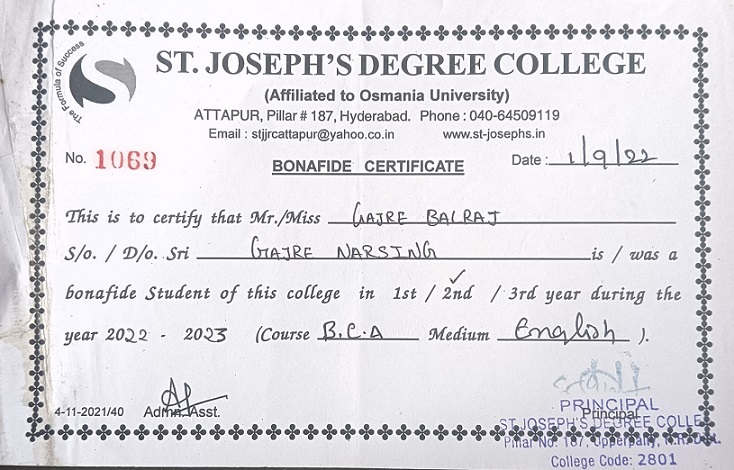 The Formula of Success
ST. JOSEPH'S DEGREE COLLEGE
(Affiliated to Osmania University)
ATTAPUR, Pillar # 187, Hyderabad. Phone : 040-64509119
Email : stjjrcattapur@yahoo.co.in www.st-josephs.in
No. 1069 Date : 1/9/22
BONAFIDE CERTIFICATE
This is to certify that Mr./Miss GAJRE BALRAJ
S/o. / D/o. Sri GAJRE NARSING is / was a
bonafide Student of this college in 1st / 2nd / 3rd year during the
year 2022 - 2023 (Course B.C.A Medium English ).
4-11-2021/40 Admn. Asst. Principal
PRINCIPAL
ST.JOSEPH'S DEGREE COLLE
Pillar No: 187, Upperpally, R.R. Dist.
College Code: 2801